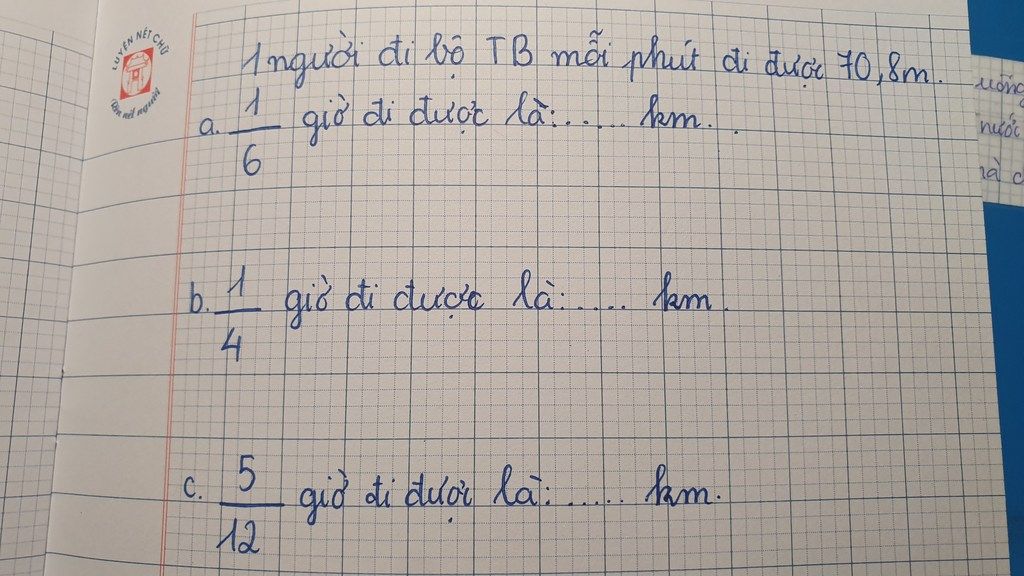 LUYỆN NÉT CHỮ
Rèn nết người
1 người đi bộ TB mỗi phút đi được 70,8m.
a. 1/6 giờ đi được là:..... km.
b. 1/4 giờ đi được là:..... km.
c. 5/12 giờ đi được là:..... km.
nước